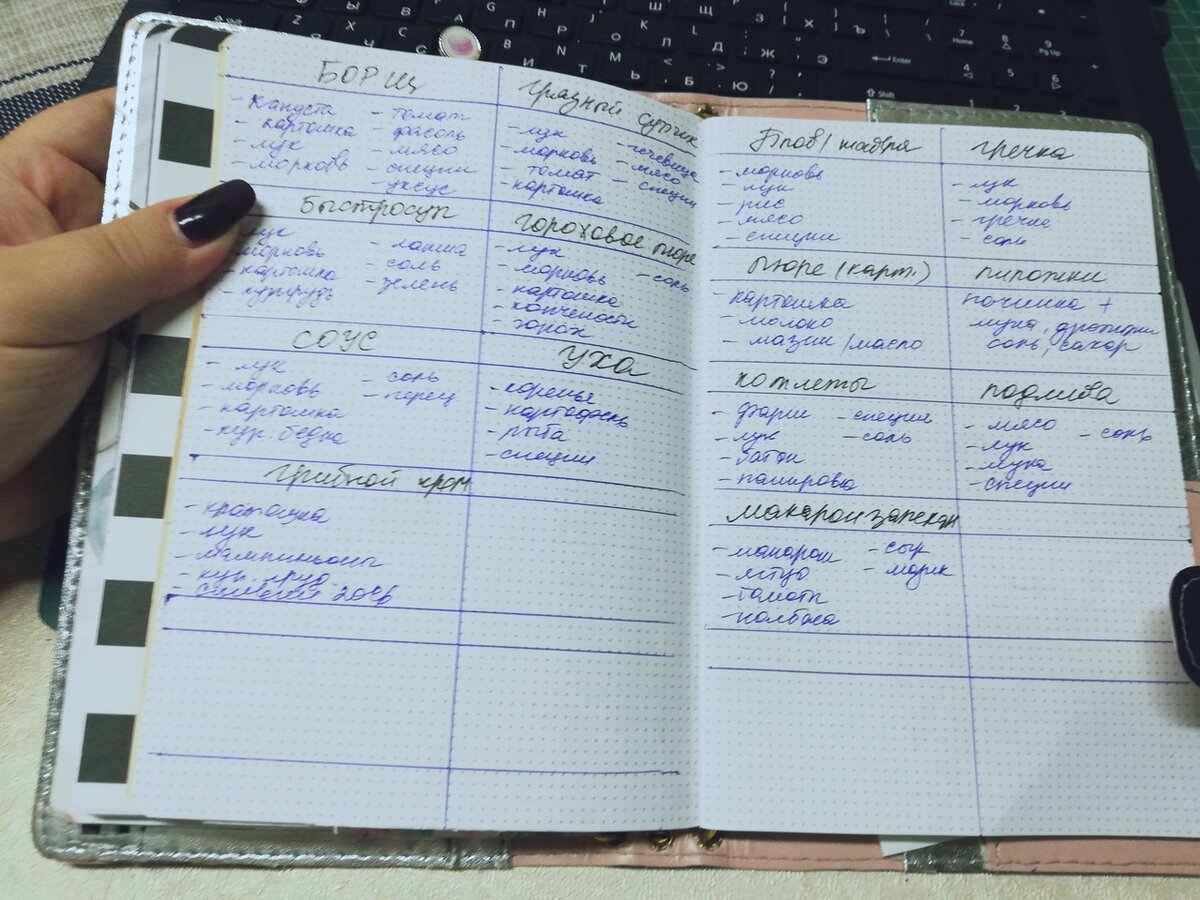 БОРЩ
- капуста - томат
- картошка - фасоль
- лук - мясо
- морковь - специи
- уксус
грязный супчик
- лук - чечевица
- морковь - мясо
- томат - специи
- картошка
Быстросуп
- лук - лапша
морковь - соль
- картошка - зелень
- кур.грудь
гороховое пюре
- лук - соль
- морковь
- картошка
- копчености
- горох
СОУС
- лук - соль
- морковь - перец
- картошка
- кур. бедра
УХА
- коренья
- картофель
- рыба
- специи
грибной крем
- картошка
- лук
- шампиньоны
- кур. груд.
- сливки 20%
Плов/
- морковь
- лук
- рис
- мясо
- специи
гречка
- лук
- морковь
- гречка
- соль
пюре (карт.)
- картошка
- молоко
- мазик/масло
пирожки
начинка +
мука, дрожжи
соль, сахар
котлеты
- фарш - специи
- лук - соль
- батон
- панировка
подлива
- мясо - соль
- лук
- мука
- специи
макарон запекан
- макарон - сыр
- яйцо - мазик
- томат
- колбаса